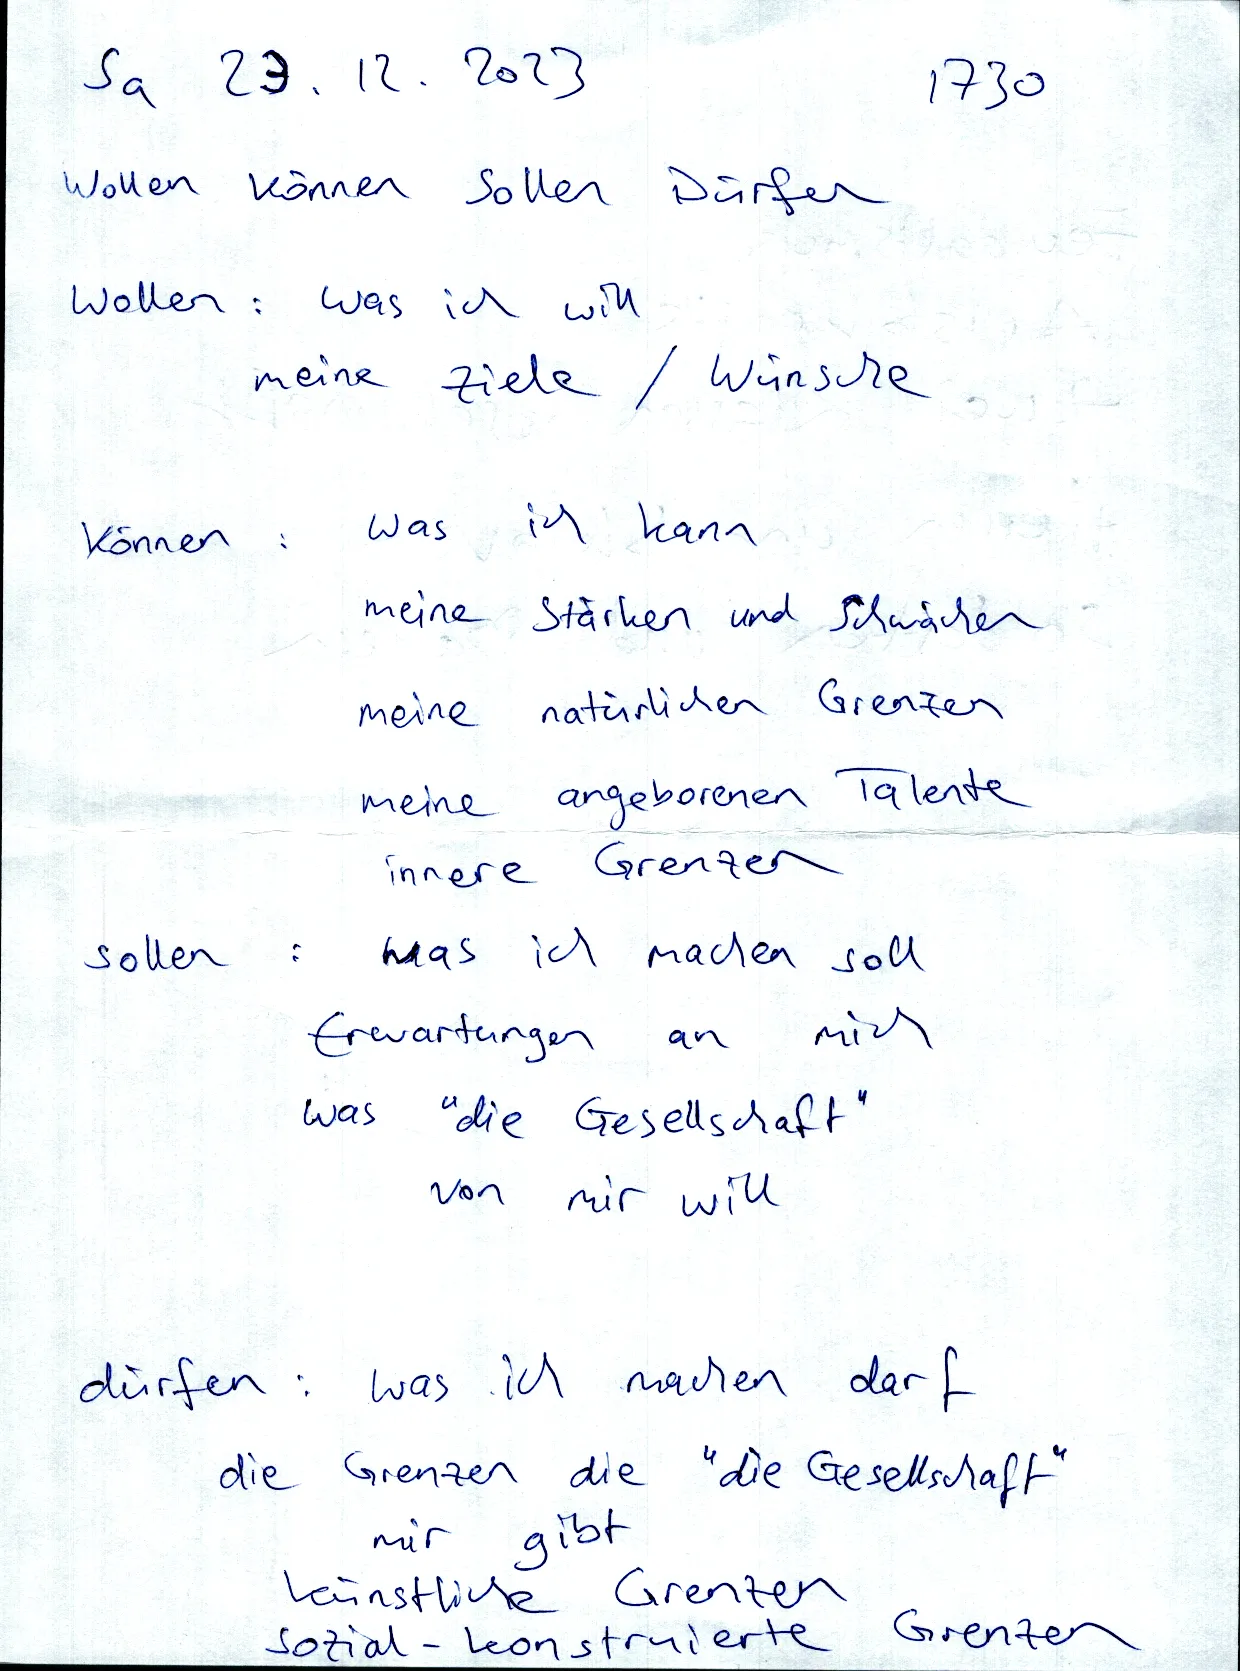 Sa 23. 12. 2023 1730
Wollen Können Sollen Dürfen
Wollen : was ich will
meine Ziele / Wünsche
Können : was ich kann
meine Stärken und Schwächen
meine natürlichen Grenzen
meine angeborenen Talente
innere Grenzen
sollen : was ich machen soll
Erwartungen an mich
was "die Gesellschaft"
von mir will
dürfen : was ich machen darf
die Grenzen die "die Gesellschaft"
mir gibt
künstliche Grenzen
sozial-konstruierte Grenzen